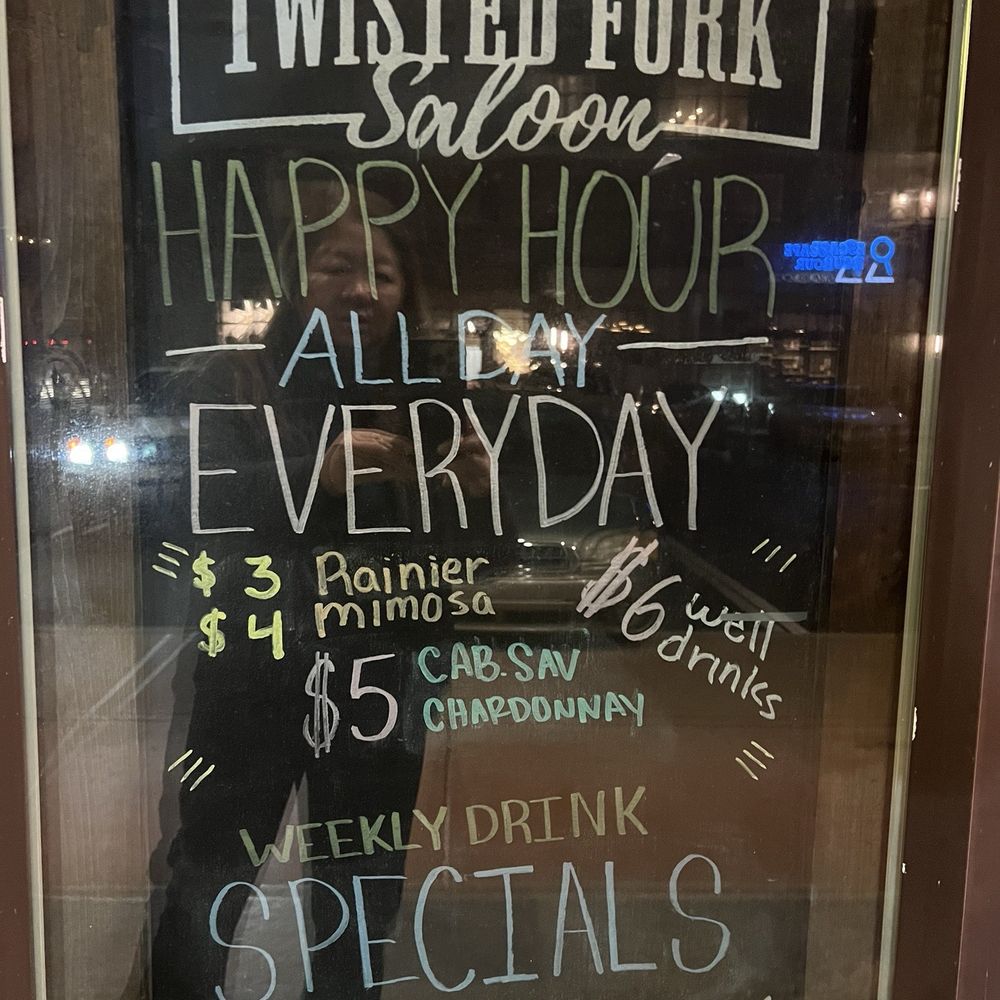 TWISTED FORK
Saloon
HAPPY HOUR
ALL DAY
EVERYDAY
$3 Rainier
$4 mimosa
$6 well
drinks
$5 CAB. SAV
CHARDONNAY
WEEKLY DRINK
SPECIALS